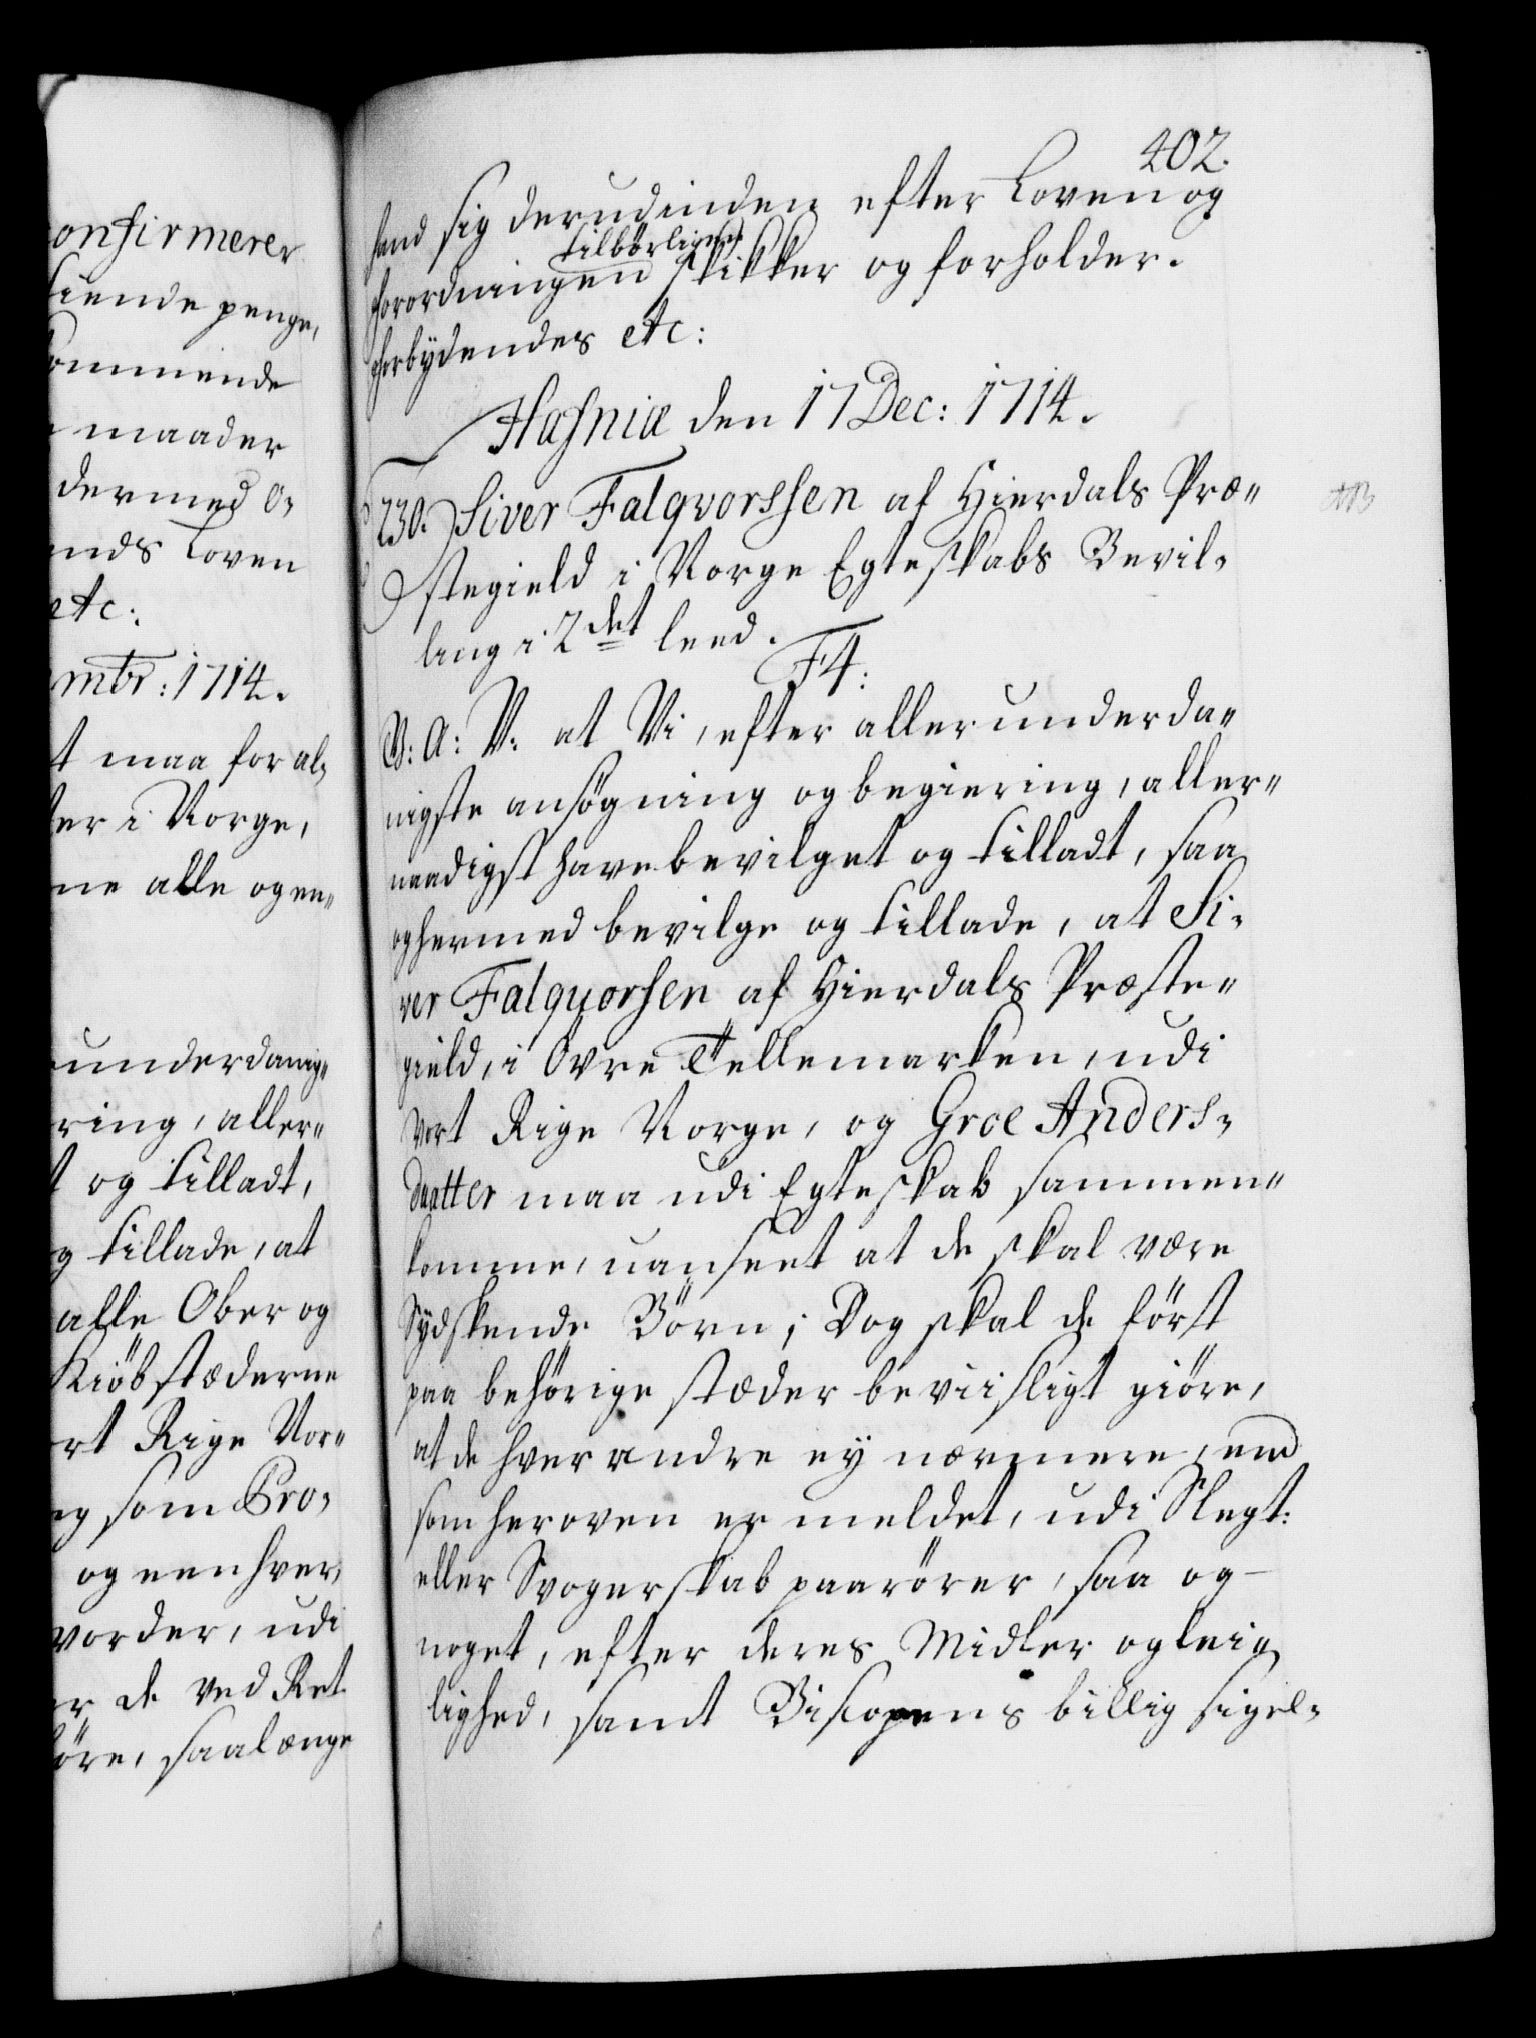 onfirmerer
tiende penge,
ommende
maader
dermed o-
ands Loven
etc:
mbr: 1714.
t maa for al-
ter i Norge,
ne alle og en-
underdanig-
ring, aller-
t og tilladt,
g tillade, at
alle Ober og
Kiöbstæderne
rt Rige Nor-
og som Pro-
og een hver,
vorder, udi
er de ved Ret
öre, saalænge
402.
hand sig derudinden efter Loven og
tilbörligen
forordningen skikker og forholder.
forbÿdendes etc:
Hafniæ den 17 Dec: 1714.
230. Siver Falqvorssen af Hierdals Præ-
stegield i Norge Egteskabs Bevil-
ling i 2det leed.
F4:
G: A: V: at Vi, efter allerunderda-
nigste ansögning og begiering, aller-
naadigst have bevilget og tilladt, saa
og hermed bevilge og tillade, at Si-
ver Falqvorsen af Hierdals Præste-
gield, i Övre Tellemarken, udi
Vort Rige Norge, og Groe Anders-
daatter maa udi Egteskab sammen-
komme, uanseet at de skal være
Sydskende Börn; Dog skal de först
paa behörige stæder beviisligt giöre,
at de hver andre ey nærmere, end
som heroven er meldet, udi Slegt:
eller Svogerskab paarörer, saa og
noget, efter deres Midler og leig
lighed, samt Biscopens billig sigel-